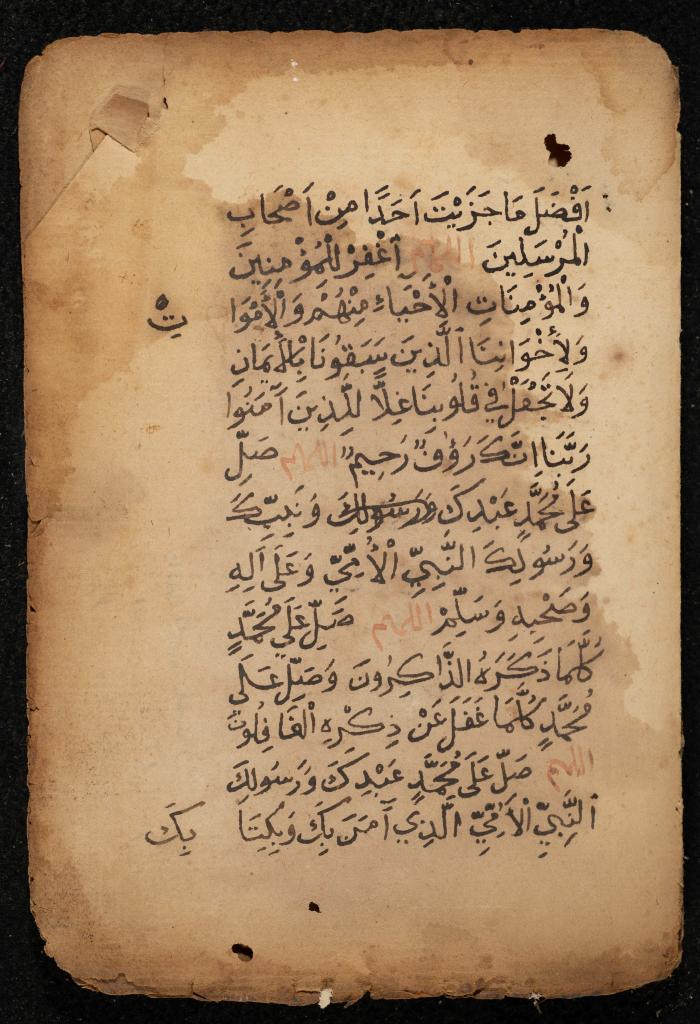 اَفْضَلَ مَا جَزَيْتَ اَحَدًا مِنْ اَصْحَابِ
الْمُرْسَلِينَ اللهم ٱغْفِرْ لِلْمُؤْمِنِينَ
وَالْمُؤْمِنَاتِ الْأَحْيَاءِ مِنْهُمْ وَالْأَمْوَا تِ
وَلِأَخْوَانِنَا ٱلَّذِينَ سَبَقُونَا بِالْأِيمَانِ
وَلَا تَجْعَلْ فِي قُلُوبِنَا غِلًّا لِلَّذِينَ آمَنُوا
رَبَّنَا اِنَّكَ رَؤُفٌ رَحِيمٌ اللهم صَلِّ
عَلَى مُحَمَّدٍ عَبْدِكَ وَرَسُولِكَ وَنَبِيِّكَ
وَرَسُولِكَ النَّبِيِّ الْأُمِّيِّ وَعَلَى آلِهِ
وَصَحْبِهِ وَسَلِّمْ اللهم صَلِّ عَلَى مُحَمَّدٍ
كُلَّمَا ذَكَرَهُ الذَّاكِرُونَ وَصَلِّ عَلَى
مُحَمَّدٍ كُلَّمَا غَفَلَ عَنْ ذِكْرِهِ الْغَافِلُونَ
اللهم صَلِّ عَلَى مُحَمَّدٍ عَبْدِكَ وَرَسُولِكَ
ٱلنَّبِيِّ الْأُمِّيِّ الَّذِي آمَنَ بِكَ وَبِكِتَا بِكَ